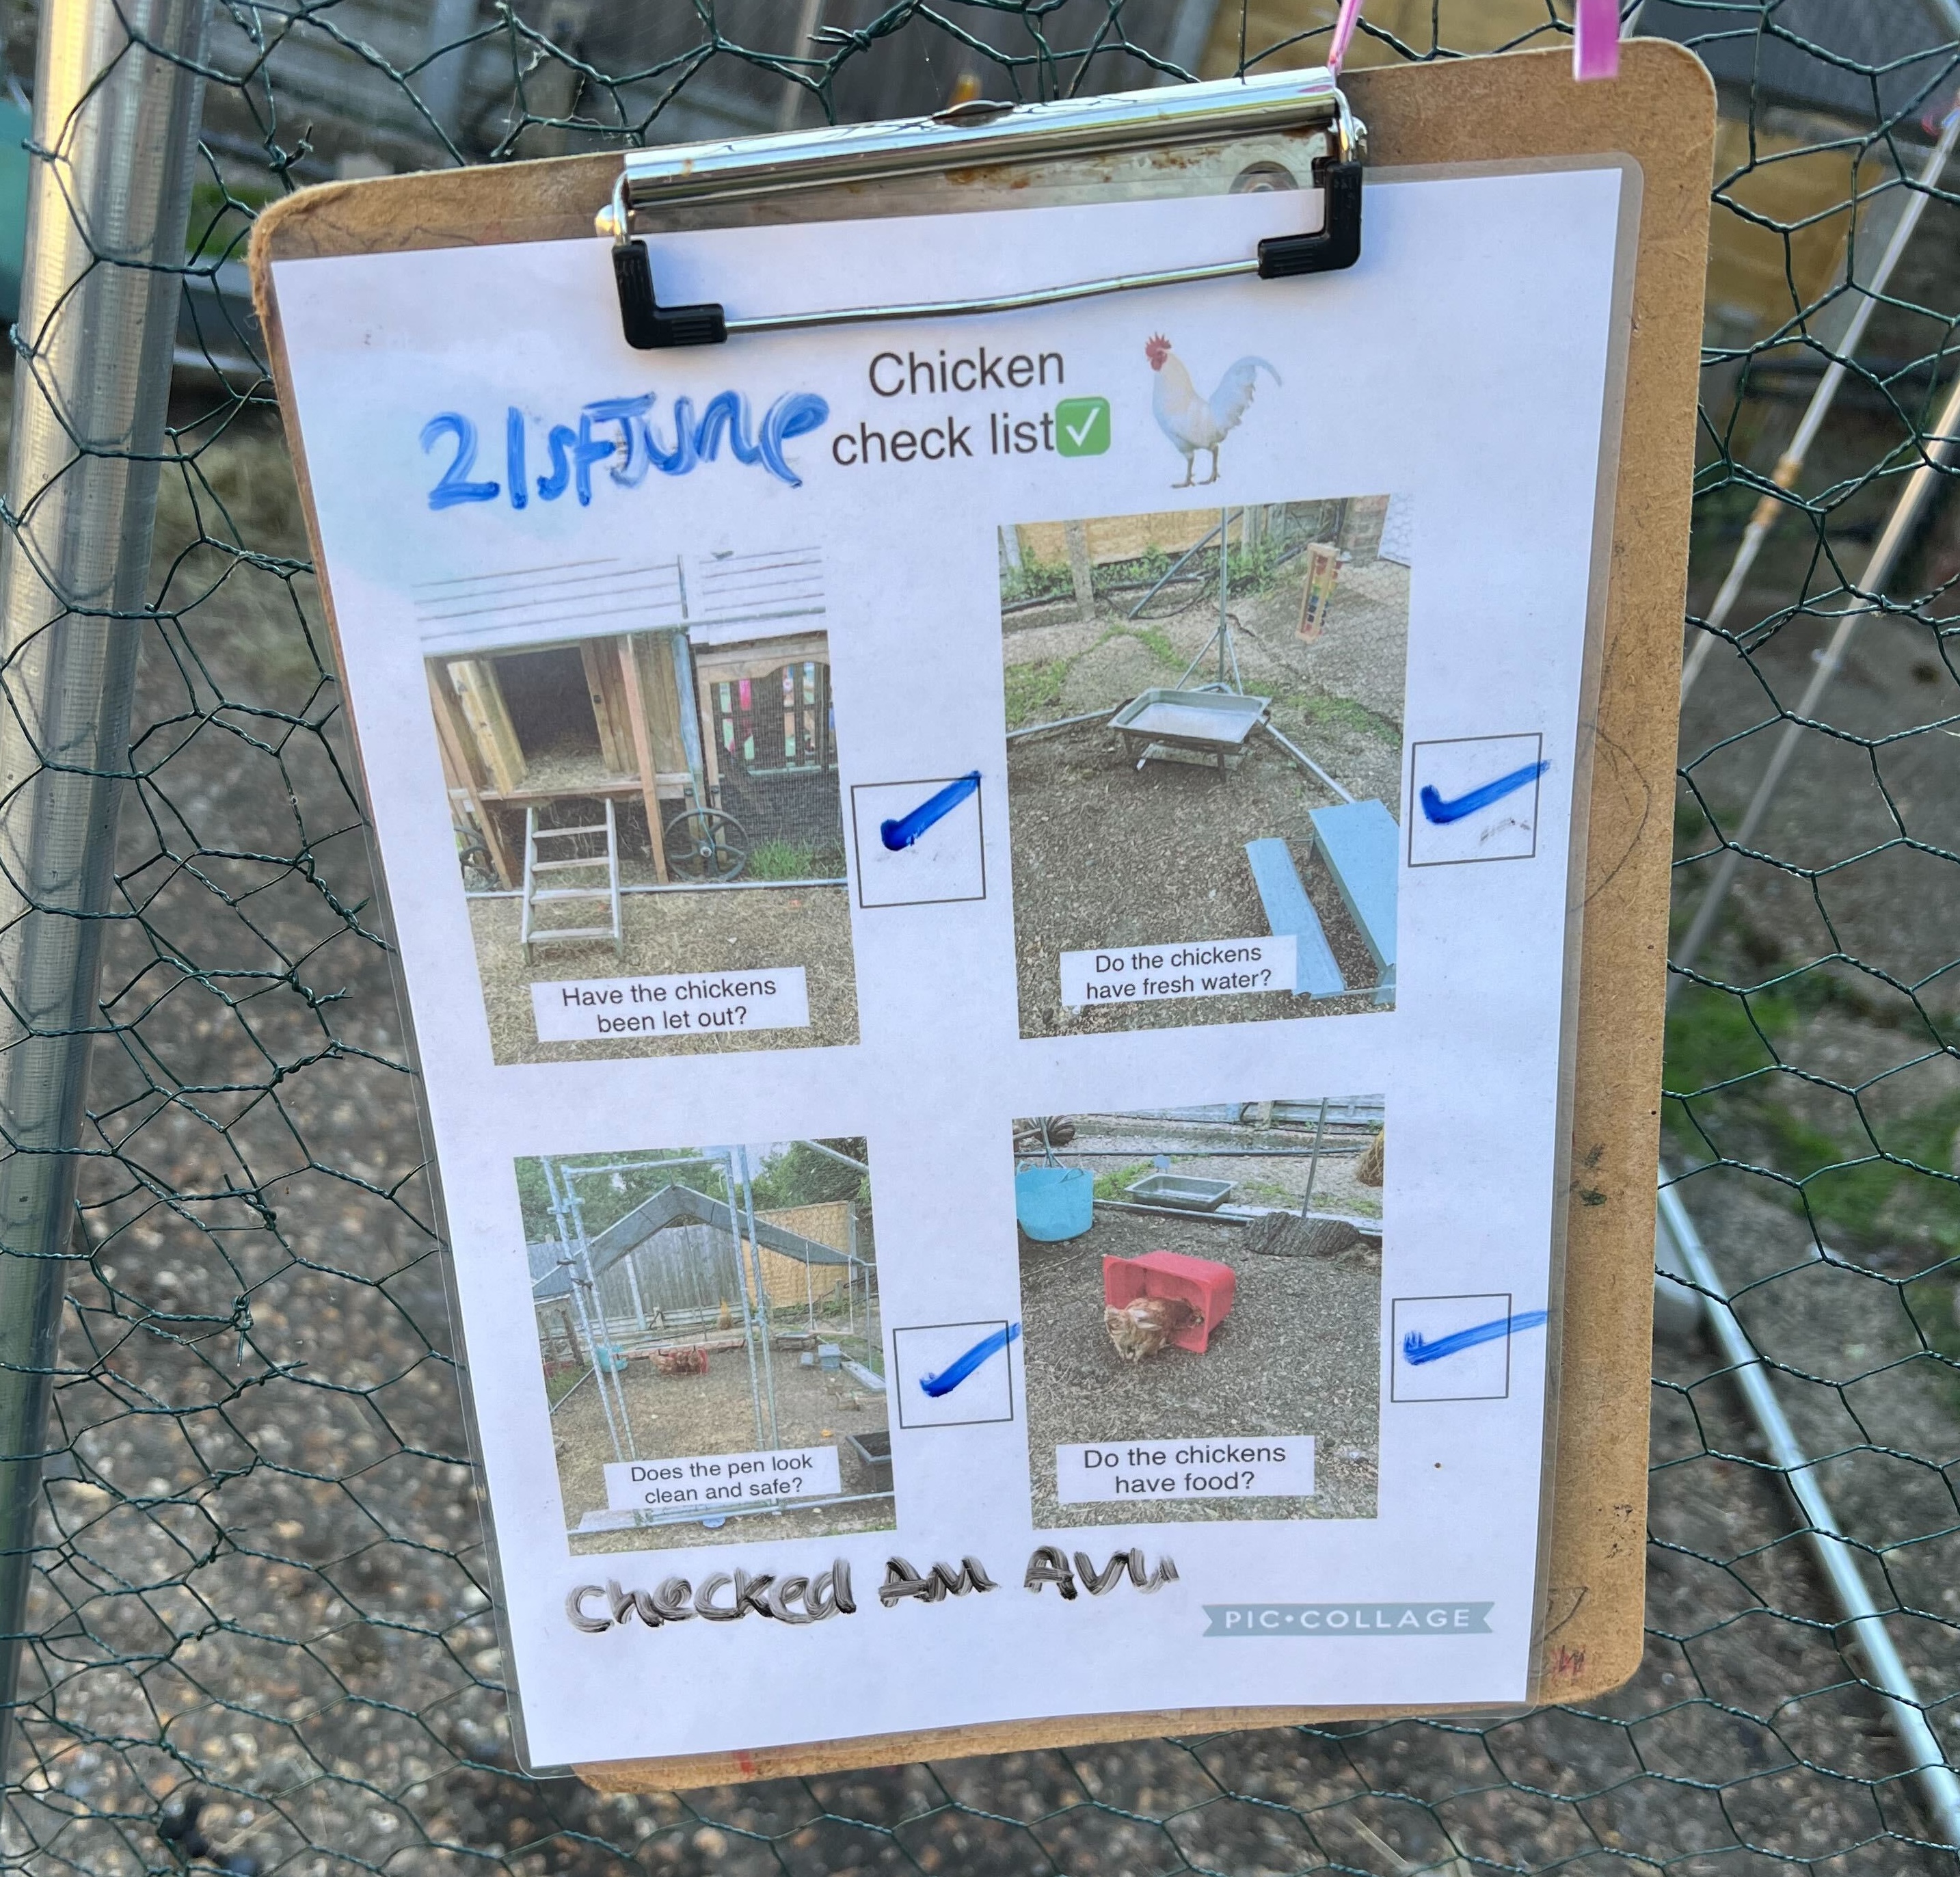 Chicken
21st June check list✅
Have the chickens
been let out?
Do the chickens
have fresh water?
Does the pen look
clean and safe?
Do the chickens
have food?
checked AM
PIC•COLLAGE